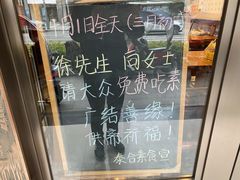 4月1日全天(三月初
徐先生 向女士
请大众免费吃素
广结善缘!
供斋祈福!
泰合素食宣